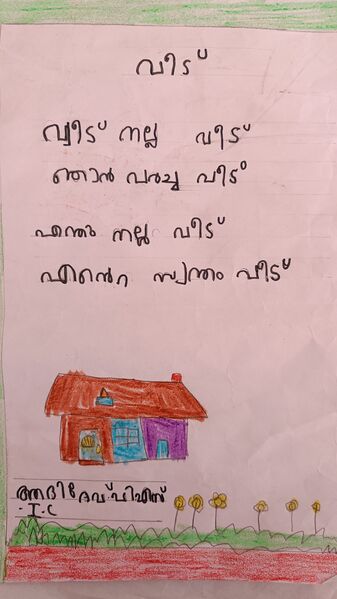 വീട്
വീട് നല്ല വീട്
ഞാൻ വരച്ച വീട്
എന്തു നല്ല വീട്
എന്റെ സ്വന്തം വീട്
ആദിദേവ്.പി.എസ്
I.C